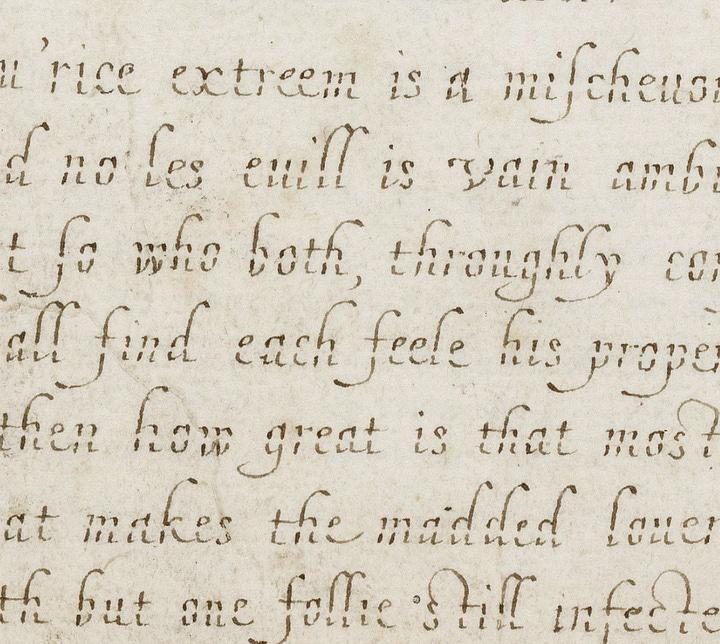 u'rice extreem is a miſcheuou
d no les euill is vain ambi
t ſo who both, throughly con
all find each feele his proper
then how great is that most
at makes the madded louer
th but one follie still infecte